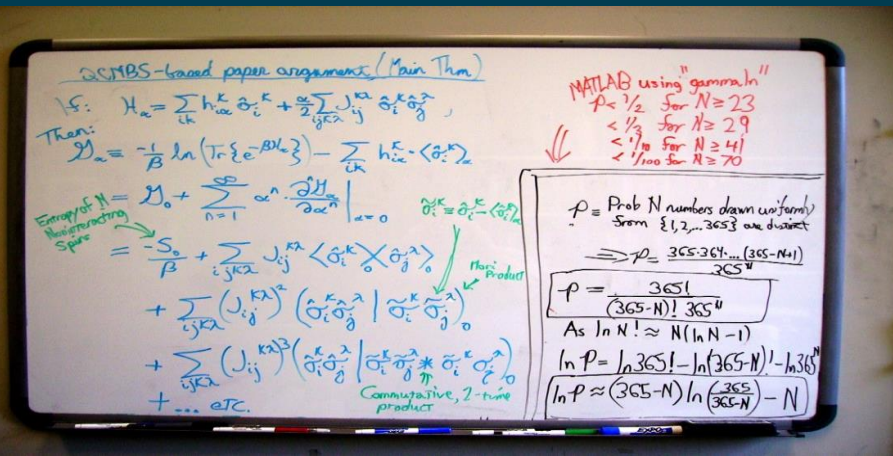 QCMBS-based paper argument (Main Thm)
If: H_α = Σ_{ik} h_{iα}^κ σ̂_i^κ + α/2 Σ_{ijκλ} J_{ij}^{κλ} σ̂_i^κ σ̂_j^λ ,
Then:
G_α = -1/β ln (Tr{e^{-βH_α}}) - Σ_{ik} h_{iα}^κ · <σ̂_i^κ>_α
= G_0 + Σ_{n=1}^∞ α^n · ∂^n G_α / ∂α^n |_{α=0}
Entropy of N
Noninteracting
Spins
σ̃_i^κ ≡ σ̂_i^κ - <σ̂_i^κ>_α
= -S_0/β + Σ_{ijκλ} J_{ij}^{κλ} <σ̂_i^κ>_0 <σ̂_j^λ>_0
Mori
Product
+ Σ_{ijκλ} (J_{ij}^{κλ})² (σ̂_i^κ σ̂_j^λ | σ̃_i^κ σ̃_j^λ)_0
+ Σ_{ijκλ} (J_{ij}^{κλ})³ (σ̂_i^κ σ̂_j^λ | σ̃_i^κ σ̃_j^λ * σ̃_i^κ σ̃_j^λ)_0
Commutative, 2-time
product
+ ... etc.
MATLAB using "gammaln"
P < 1/2 for N ≥ 23
< 1/3 for N ≥ 29
< 1/10 for N ≥ 41
< 1/100 for N ≥ 70
P ≡ Prob N numbers drawn uniformly
from {1,2,...365} are distinct
⇒ P = 365·364·...(365-N+1) / 365^N
P = 365! / (365-N)! 365^N
As ln N! ≈ N(ln N - 1)
ln P = ln 365! - ln(365-N)! - ln 365^N
ln P ≈ (365-N) ln (365/365-N) - N
EXPO